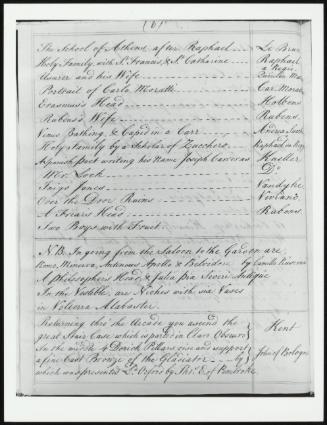 (6)
The School of Athens, after Raphael
Le Brun
Holy Family, with St. Joannis, & St. Catharine
Raphael
a Regio
Usurer and his Wife
Portrait of Carlo Moratti
Car. Morat
Erasmus's Head
Holbens
Ruben's Wife
Rubens
Venus Bathing, & Cupid in a Carr
Andrea
Holy Family by a Scholar of Zucchero
Raphael
A Spanish Poet writing his Name Joseph Carreras
Kneller
Mr. Lock
Do.
Inigo Jones
Vandyke
Over the Door Ruins
A Friars Head
Rubens
Two Boys with Fruit
N.B. In going from the Saloon to the Garden are,
Rome, Minerva, Antinous, Apollo, & Belvidere by Camillo
A Philosophers Head, & Julia pia Severi Antique
In the Vestible, are Niches with six Vases
in Volterra Alabaster
Returning thro' the Arcade you ascend the
great Stair Case, which is painted in Claro Obscuro
Kent
In the middle 4 Dorick Pillars rise and support
a fine Cast Bronze of the Gladiator by
John of Bologna
which was presented Ld. Orford by Thos. E. of Pembroke